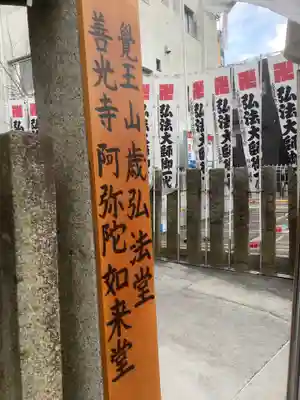 覺王山歳弘法堂
善光寺阿弥陀如来堂
卍弘法大師御
卍弘法大師
卍弘法大師御
卍弘法大師